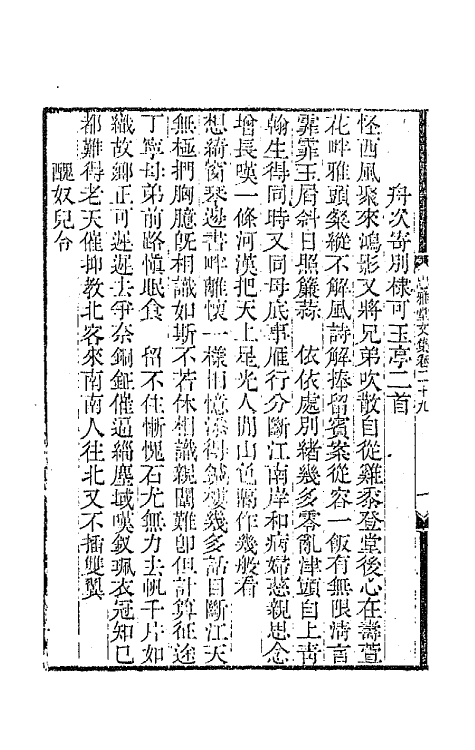 舟次寄別棣可玉亭二首
怪西風聚來鴻影又將兄弟吹散自從雞黍登堂後心在壽萱
花畔雅頭粲縱不解風詩解捧留賓案從容一飯有無限清言
霏霏玉屑斜日照簾蒜　依依處別緒幾多零亂津頭自上靑
翰生得同時又同母底事雁行分斷江南岸和病婦慈親思念
增長嘆一條河漢把天上星光人間山色隔作幾般看
想綺窗琴邊書畔離懷一樣旧憶添得錢樓幾多話目斷江天
無極捫胸臆旣相識如斯不若休相識親闈難卽但計算征途
丁寧母弟前路愼眠食　留不住慚愧石尤無力去帆千片如
織故鄉正可遲遲去伊奈銅鉦催逼緇塵域嘆釵珮衣冠知己
都難得老天催抑敎北客來南南人往北又不插雙翼
醜奴兒令
忠雅堂文集卷二十九
一